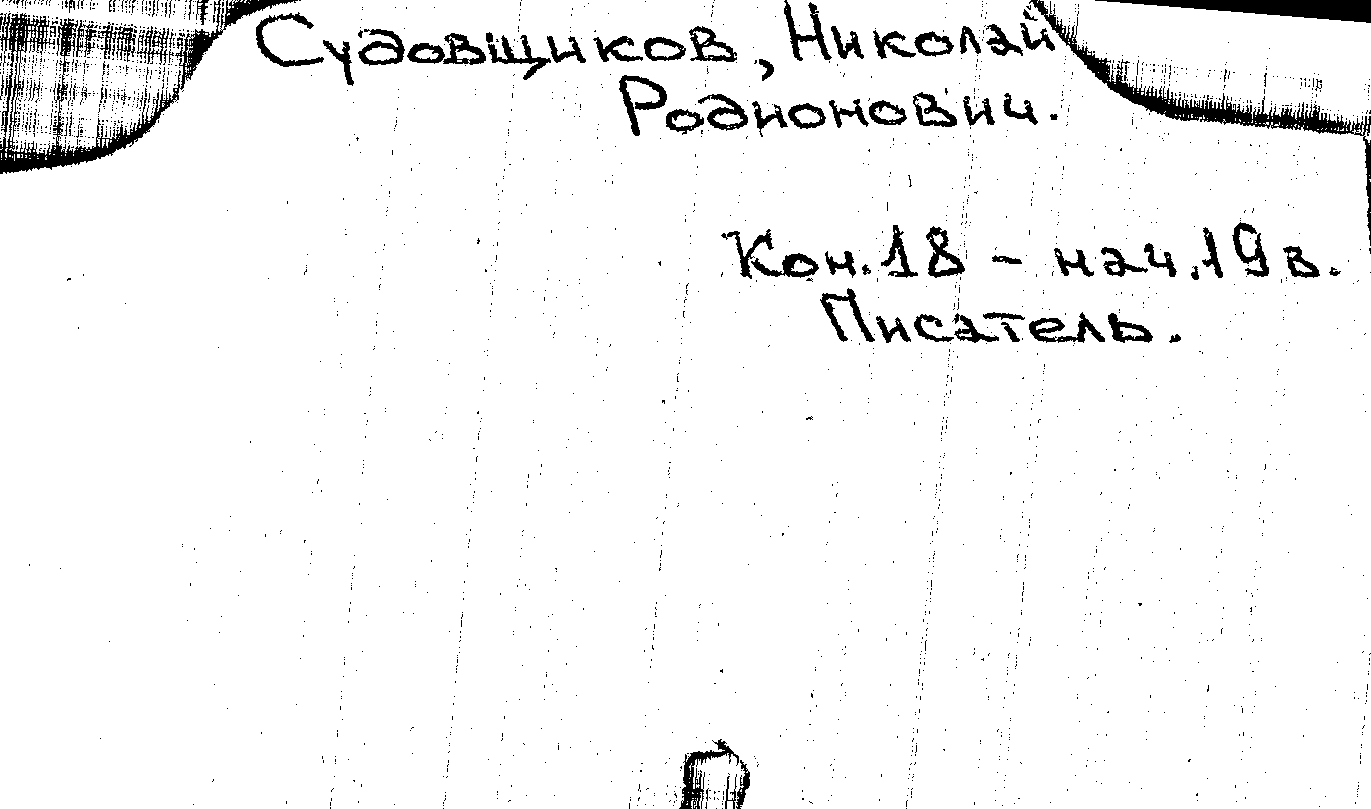 Судовщиков, Николай
Родионович.
Кон. 18 - нач. 19 в.
Писатель.